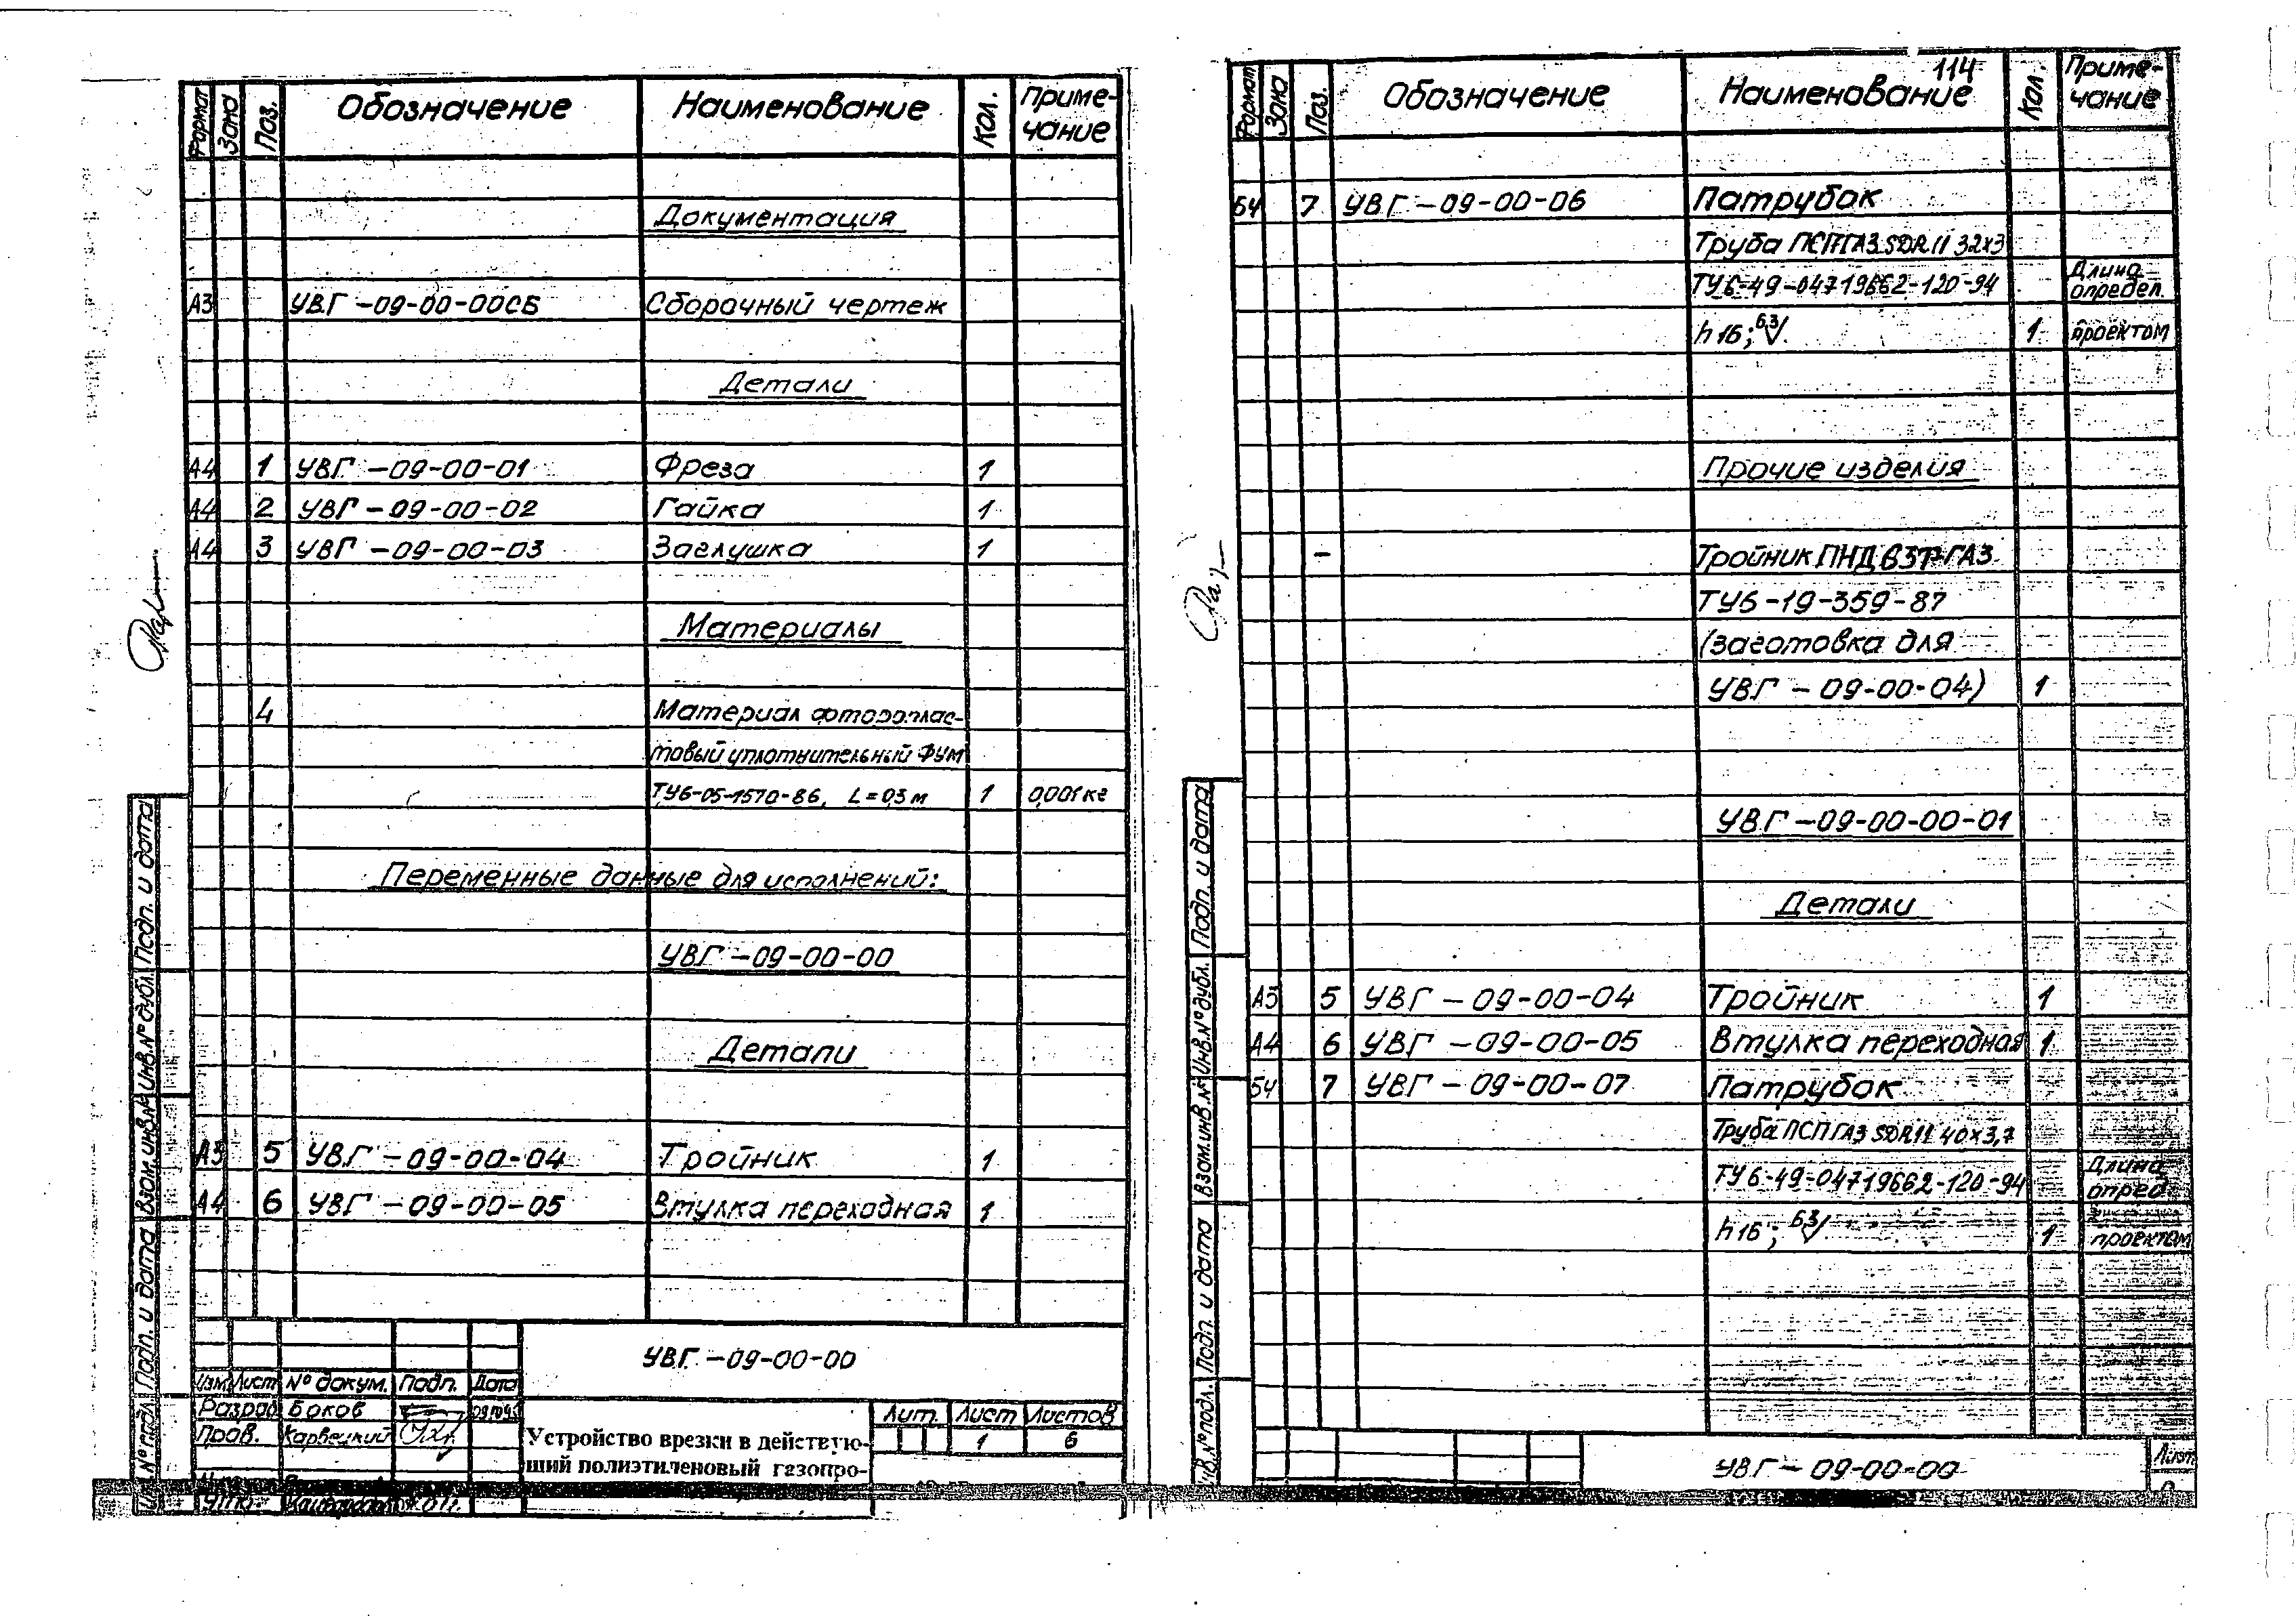 Формат Зона Поз. Обозначение Наименование Кол. Приме-
чание
Документация
А3 УВГ-09-00-00СБ Сборочный чертеж
Детали
А4 1 УВГ-09-00-01 Фреза 1
А4 2 УВГ-09-00-02 Гайка 1
А4 3 УВГ-09-00-03 Заглушка 1
Материалы
4 Материал фторoплас-
товый уплотнительный ФУМ
ТУ6-05-1570-86, L=0,3 м 1 0,001кг
Переменные данные для исполнений:
УВГ-09-00-00
Детали
А3 5 УВГ-09-00-04 Тройник 1
А4 6 УВГ-09-00-05 Втулка переходная 1
Подп. и дата
Инв.№ дубл.
Взам.инв.№
Подп. и дата
№ подл.
УВГ-09-00-00
Изм Лист № докум. Подп. Дата
Разраб Боков
Пров. Карвецкий
Устройство врезки в действую-
щий полиэтиленовый газопро-
Лит. Лист Листов
1 6
114
Формат Зона Поз. Обозначение Наименование Кол. Приме-
чание
БЧ 7 УВГ-09-00-06 Патрубок
Труба ПСП ГАЗ SDR 11 32х3
ТУ6-49-04719662-120-94 Длина
определ.
h16; 6,3 1 проектом
Прочие изделия
- Тройник ПНД 63Т ГАЗ
ТУ6-19-359-87
(заготовка для
УВГ-09-00-04) 1
УВГ-09-00-00-01
Детали
А3 5 УВГ-09-00-04 Тройник 1
А4 6 УВГ-09-00-05 Втулка переходная 1
БЧ 7 УВГ-09-00-07 Патрубок
Труба ПСП ГАЗ SDR11 40х3,7
ТУ6-49-04719662-120-94 Длина
опред.
h16; 6,3 1 проектом
Подп. и дата
Инв.№ дубл.
Взам.инв.№
Подп. и дата
Инв.№ подл.
УВГ-09-00-00
Лист